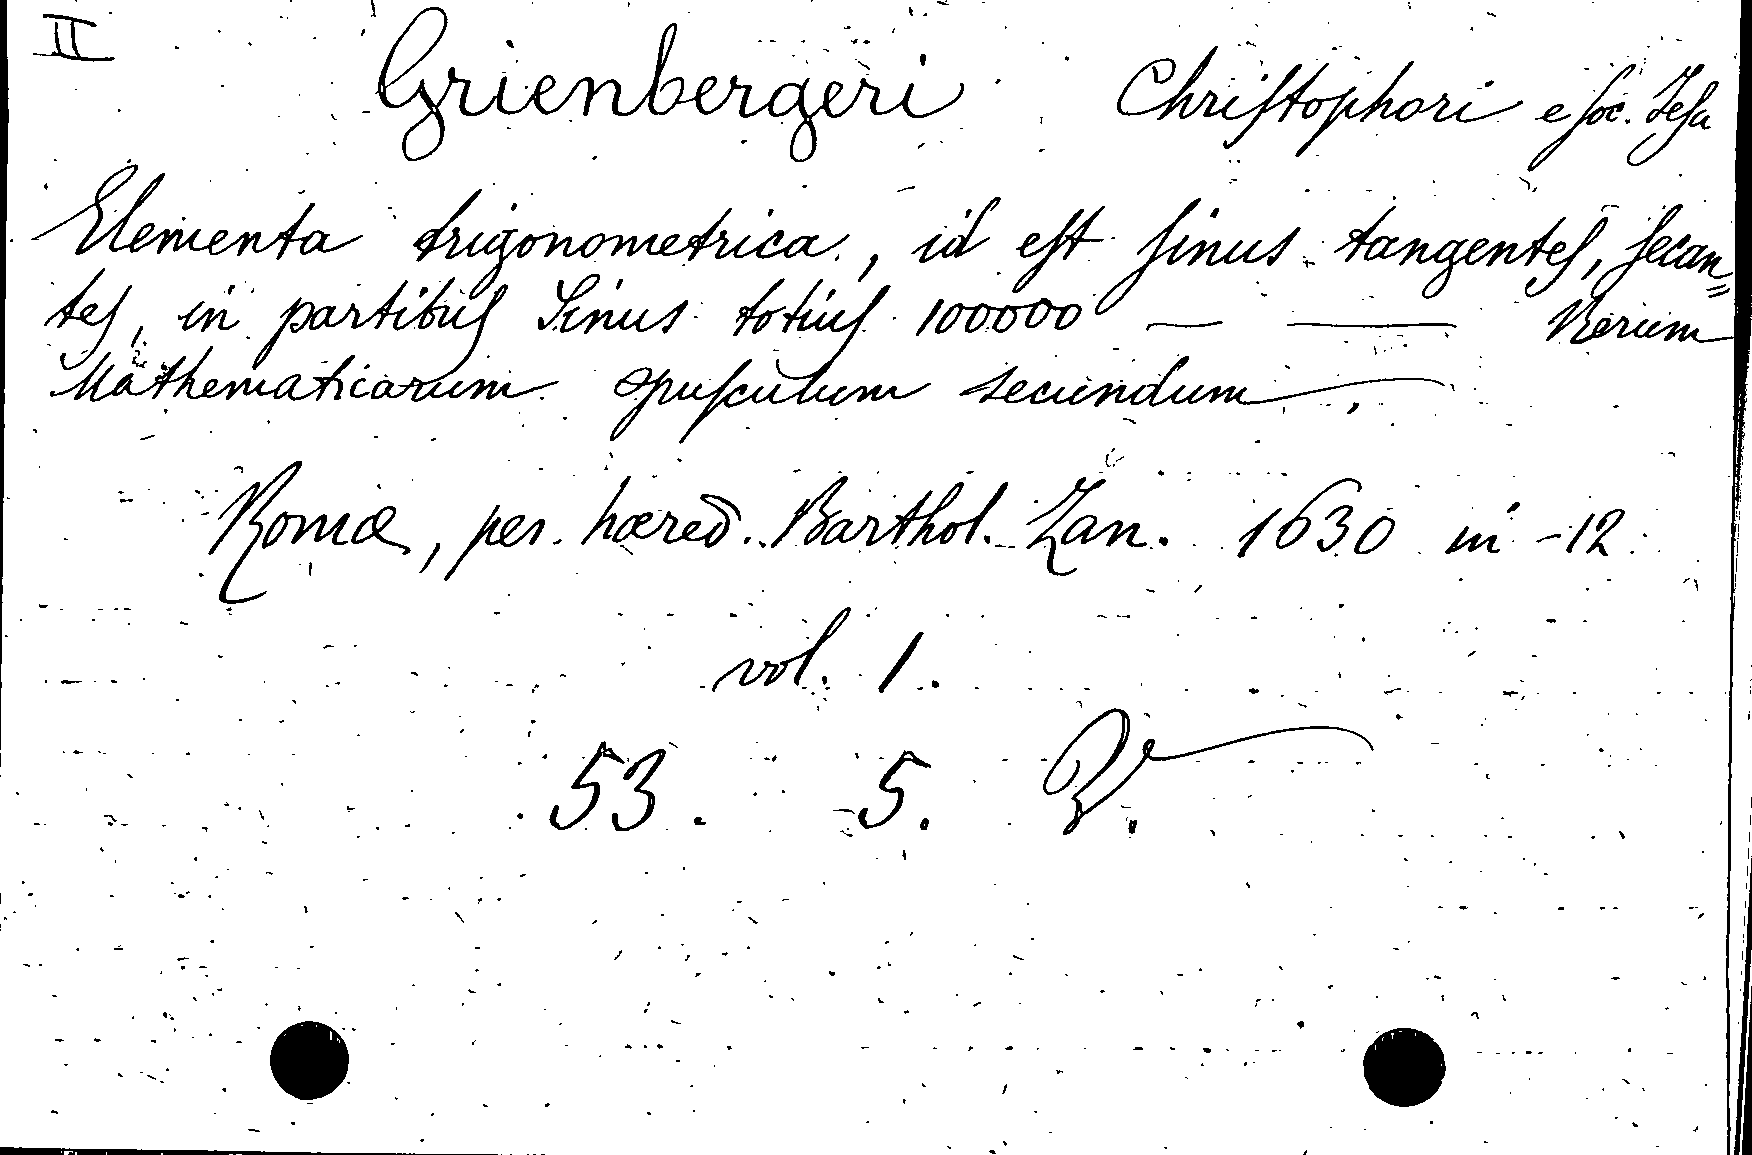 II
Grienbergeri Chriſtophori e ſoc. Jeſu
Elementa trigonometrica, id eſt ſinus tangenteſ, ſecan=
teſ, in partibuſ Sinus totiuſ 100000 — — Rerum
Mathematicarum opuſculum secundum.
Romæ, per hæred. Barthol. Zan. 1630 in -12
vol. 1.
53. 5.